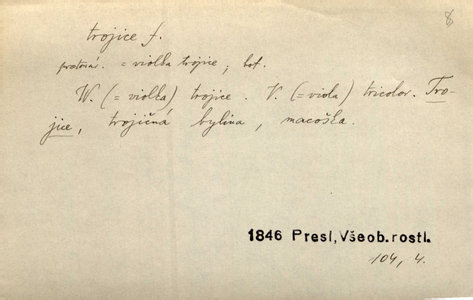 8
trojice f.
= violka trojice, bot.
W. (= violka) trojice. V. (= viola) tricolor. Tro-
jice, trojičná bylina, macoška.
1846 Presl, Všeob. rostl.
104, 4.